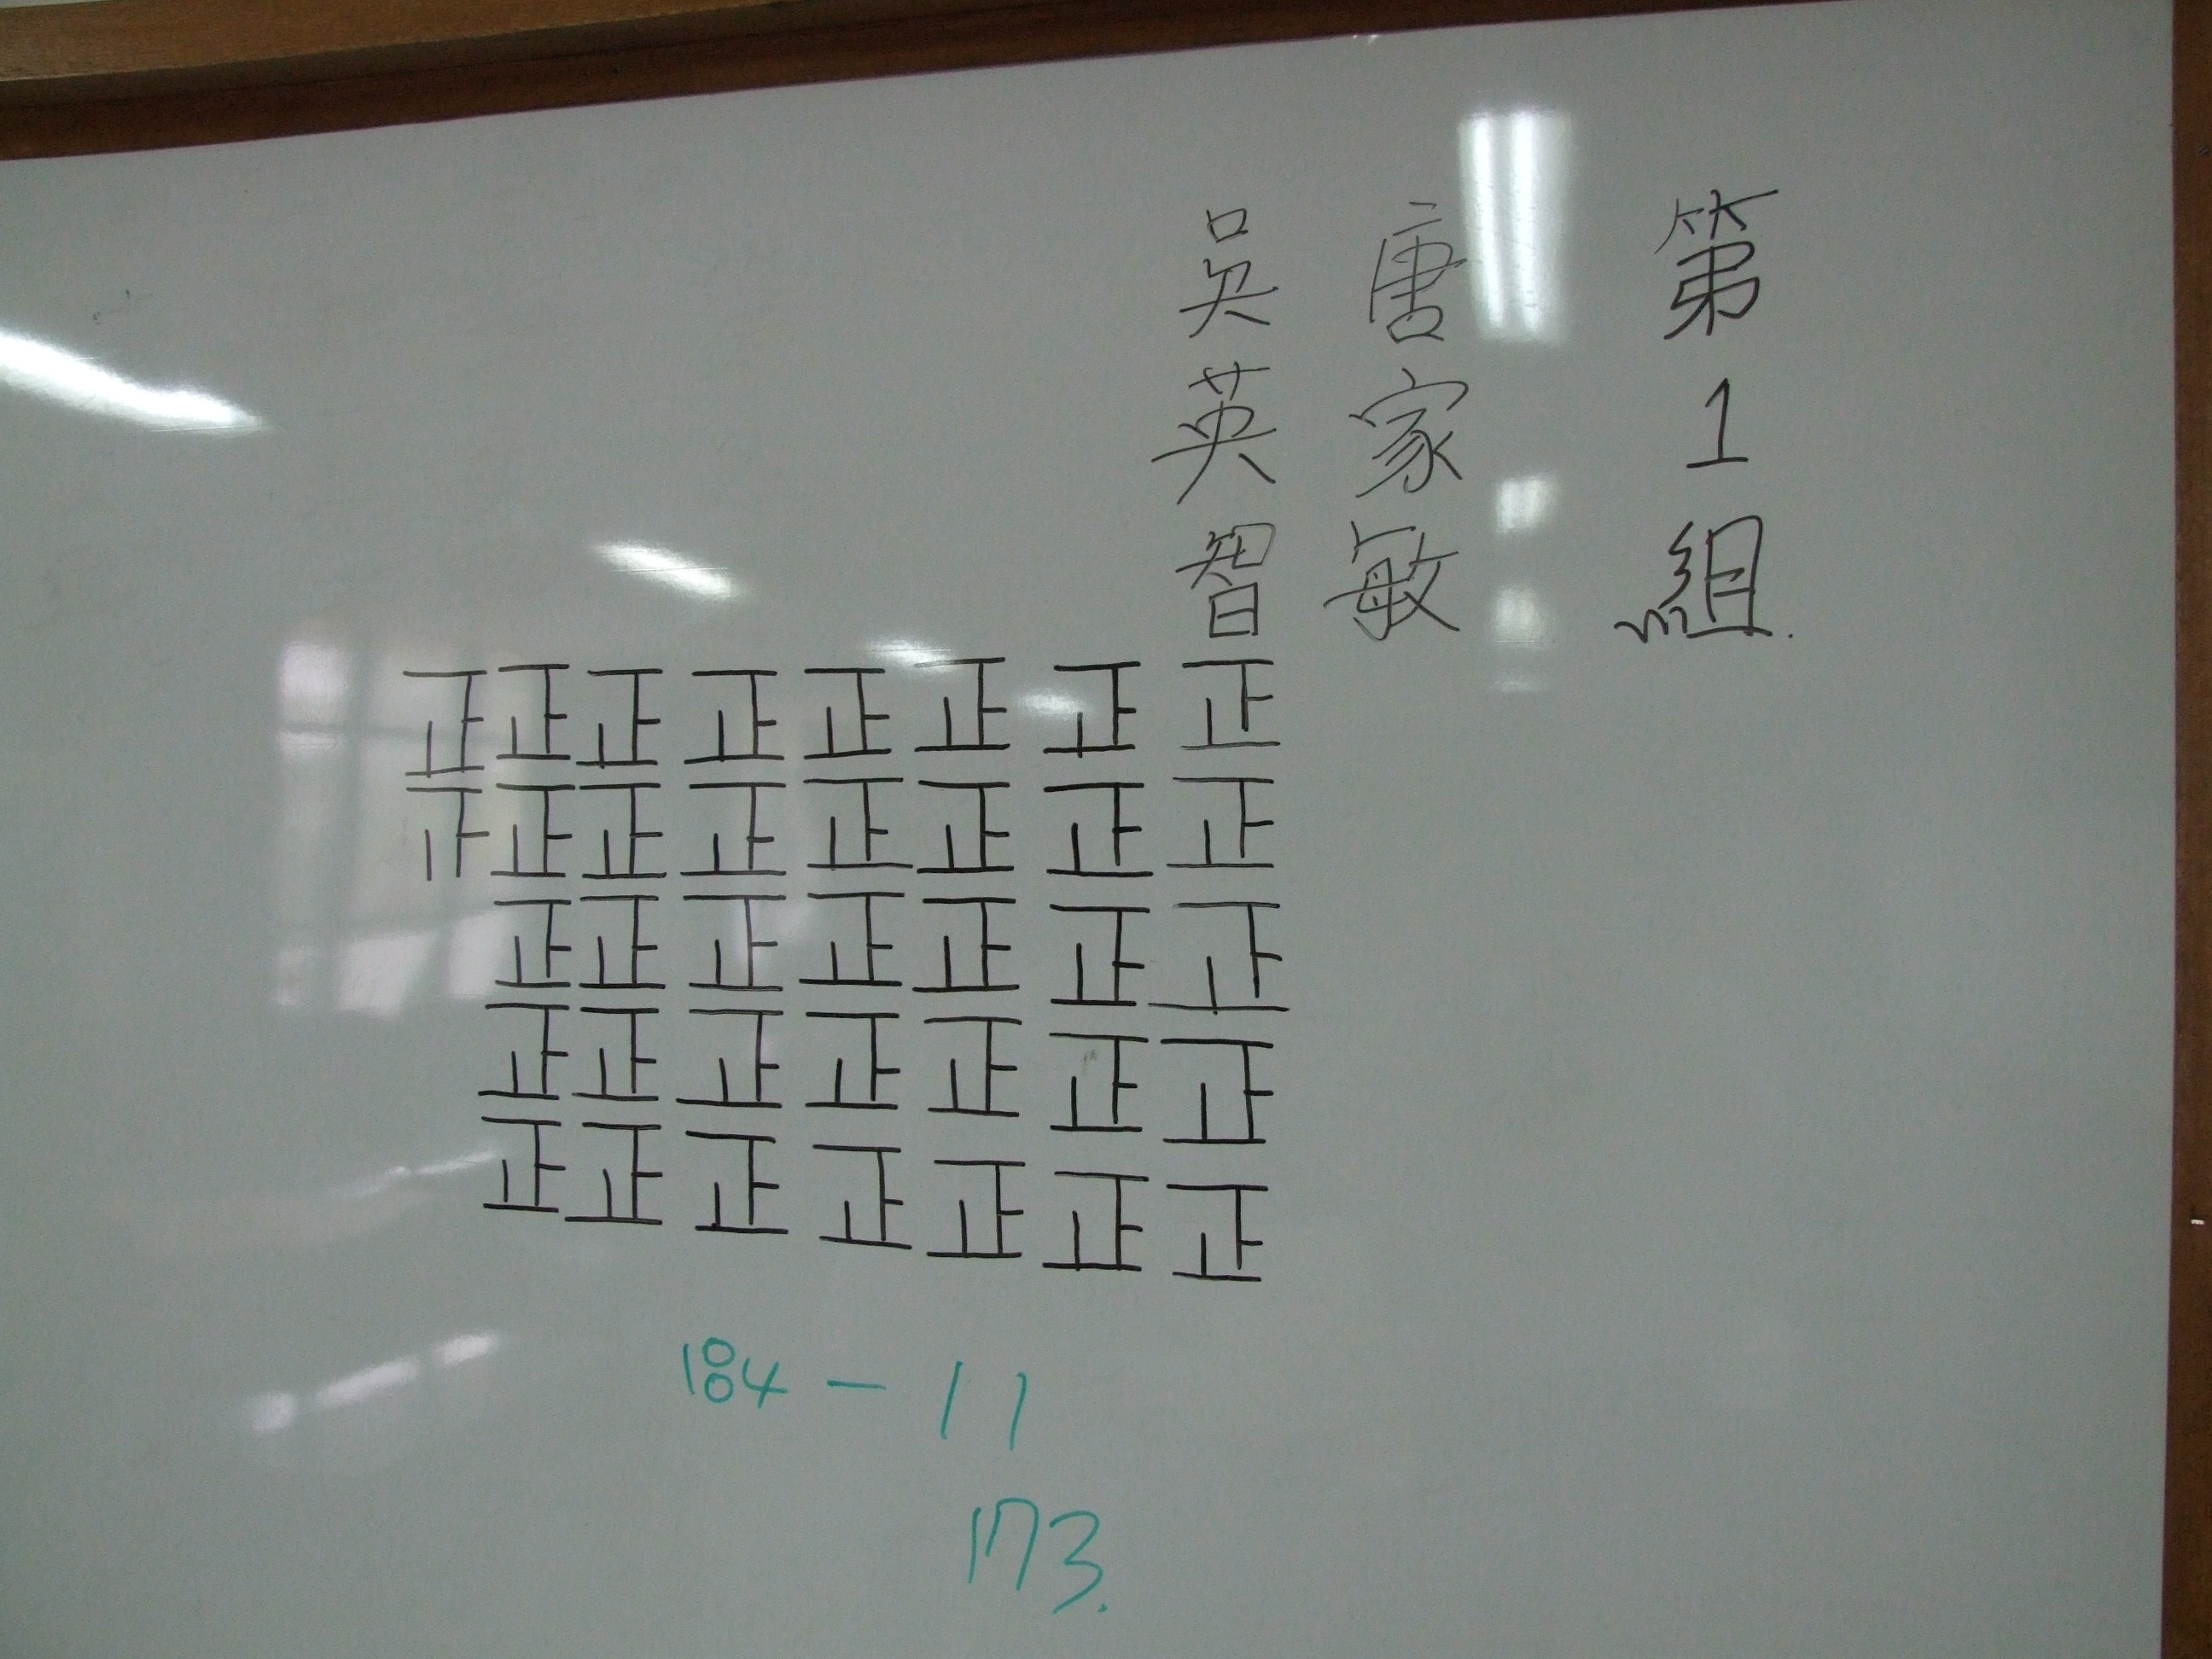 第1組.
唐家敏
吳英智
正正正正正
正正正正正
正正正正正
正正正正正
正正正正正
正正正正正
正正正正正
正
184-11
173.